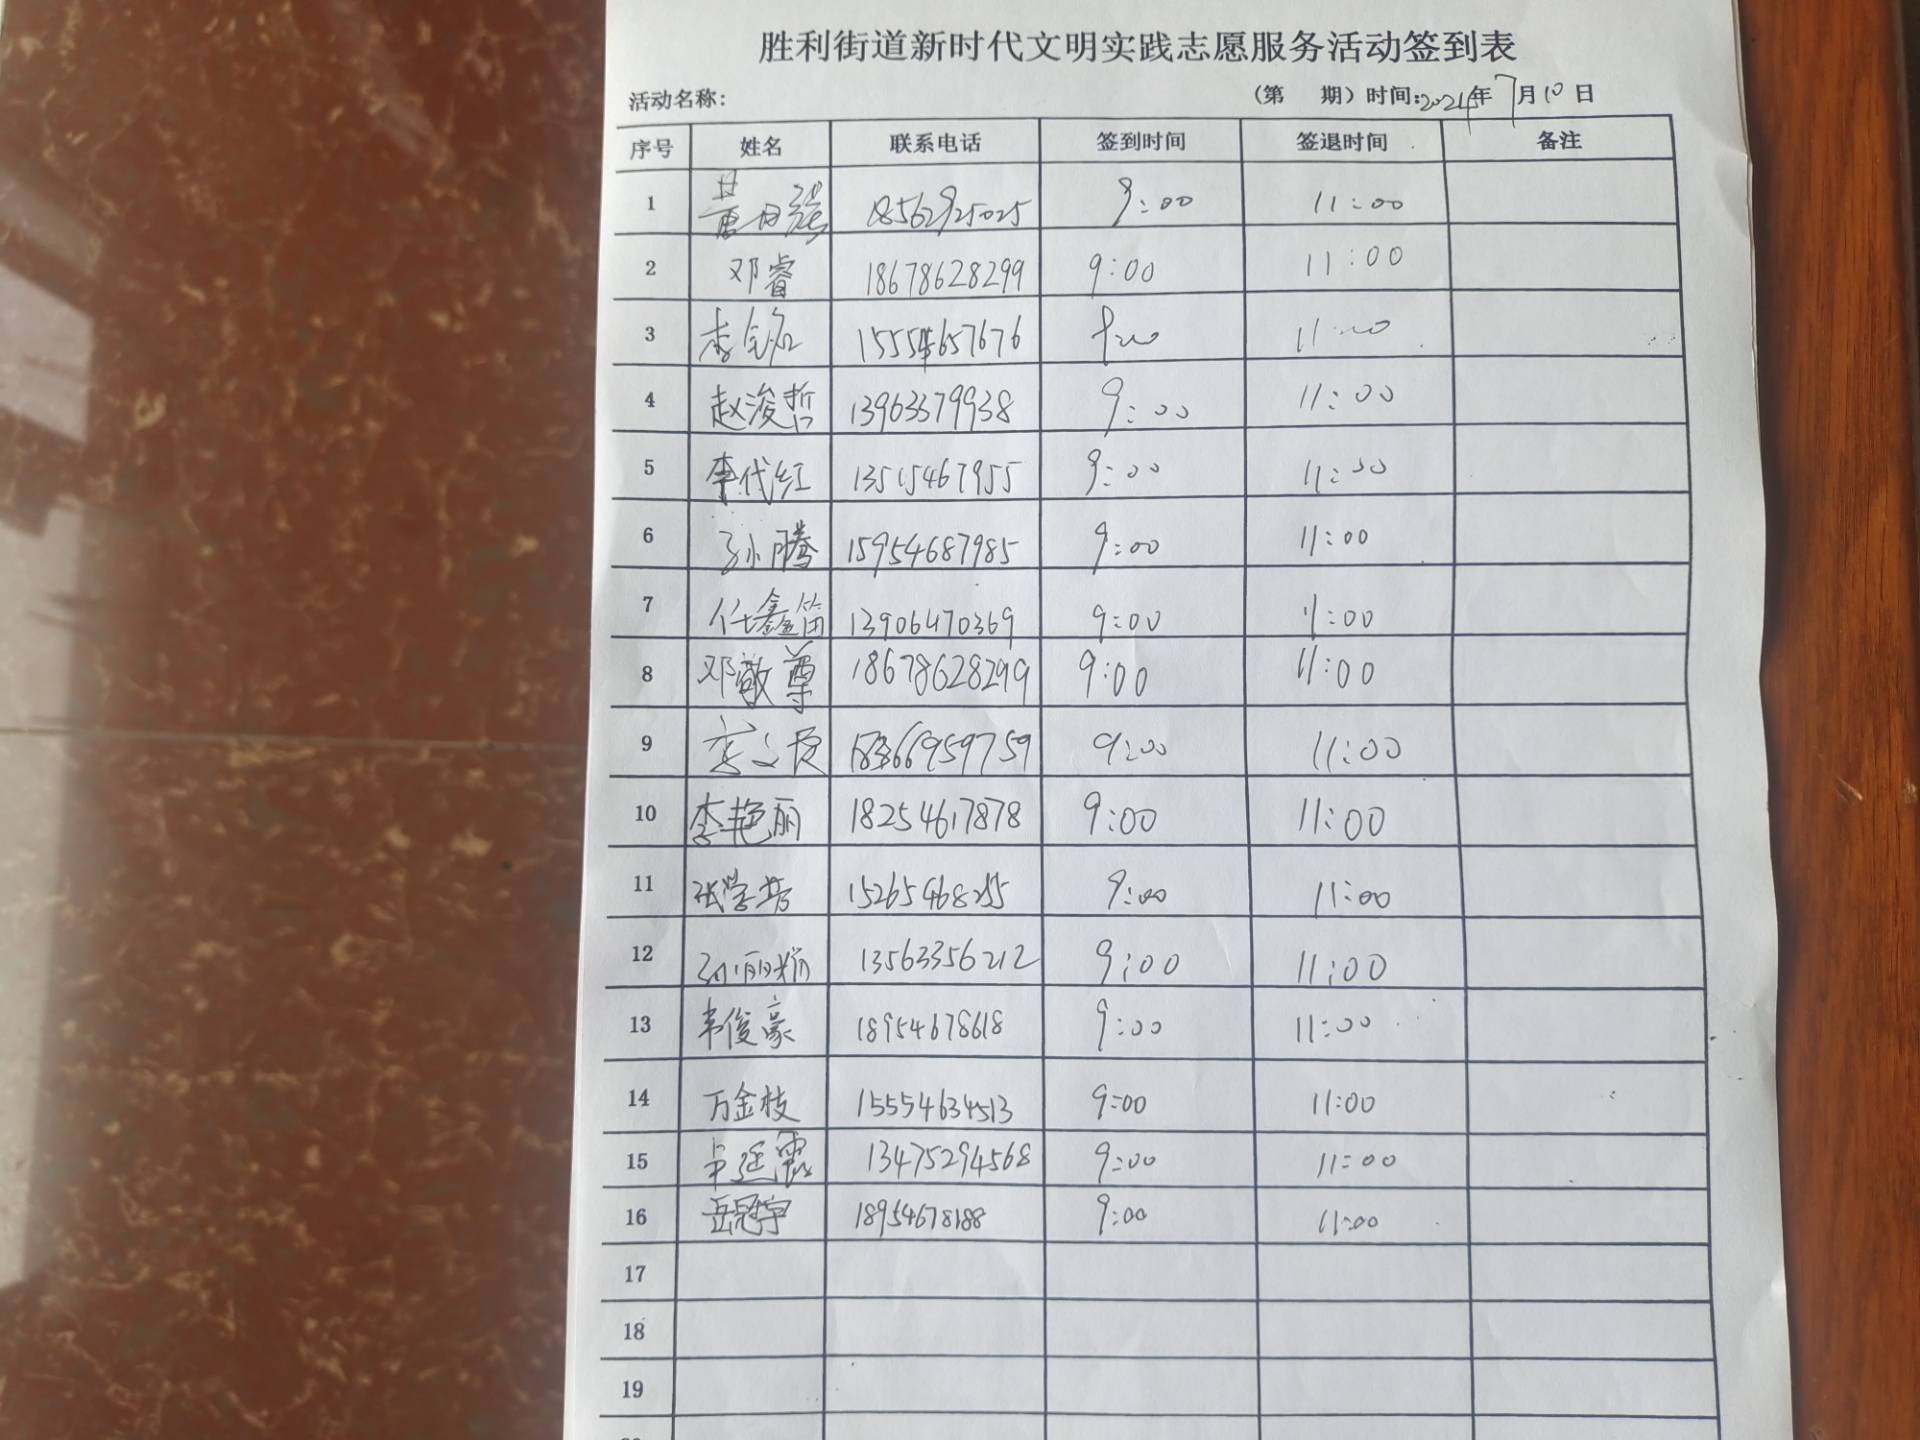 胜利街道新时代文明实践志愿服务活动签到表
活动名称: (第 期) 时间:2024年7月10日
序号 姓名 联系电话 签到时间 签退时间 备注
1 18562925025 9:00 11:00
2 邓睿 18678628299 9:00 11:00
3 15554657676 9:00 11:00
4 赵浚哲 13963379938 9:00 11:00
5 李代红 13515467955 9:00 11:00
6 孙腾 15954687985 9:00 11:00
7 任鑫笛 13906470369 9:00 11:00
8 邓敬尊 18678628299 9:00 11:00
9 9:00 11:00
10 李艳丽 18254617878 9:00 11:00
11 9:00 11:00
12 孙丽娟 13563356212 9:00 11:00
13 韦俊豪 18954678618 9:00 11:00
14 万金枝 15554634513 9:00 11:00
15 13475294568 9:00 11:00
16 岳冠宇 18954678188 9:00 11:00
17
18
19